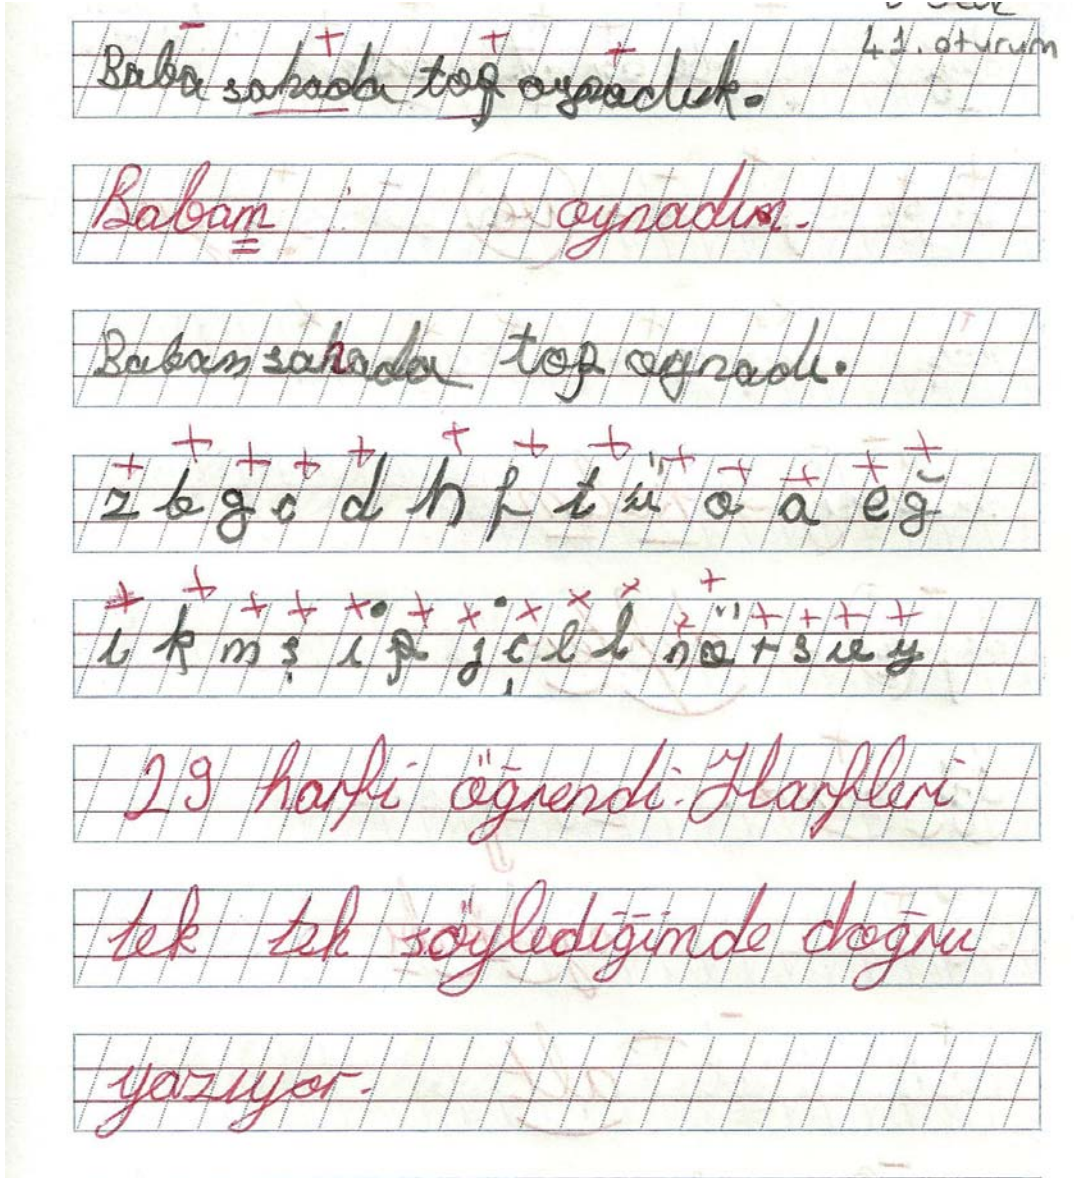 41. oturum
Baba sahada top oynaduk.
Babam oynadım.
Babam sahada top oynadı.
z b g c d h f t ü o a e ğ
ı k m ş i p j ç l l n ö r s u y
29 harfi öğrendi. Harfleri
tek tek söylediğinde doğru
yazıyor.